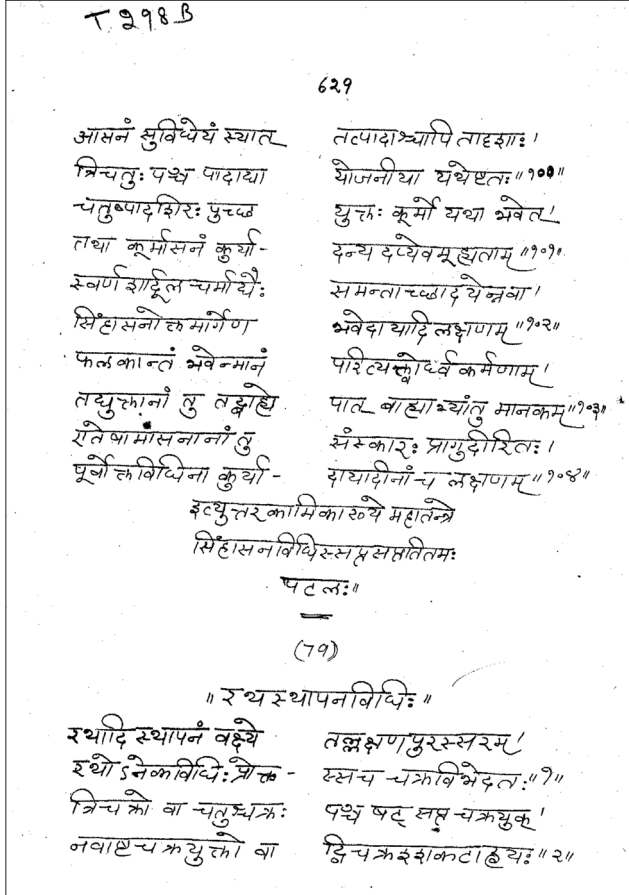 T 298 B
629
आसनं सुविधेयं स्यात् तत्पादाश्चापि तादृशाः।
त्रिचतुः पञ्च पादाद्या योजनीया यथेष्टतः॥१००॥
चतुष्पादशिरः पुच्छ युक्तः कूर्मो यथा भवेत्।
तथा कूर्मासनं कुर्या- दन्यदप्येवमूह्यताम्॥१०१॥
स्वर्णशार्दूलचर्माद्यैः समन्ताच्छादयेन्नवा।
सिंहासनोक्तमार्गेण भवेदायादिलक्षणम्॥१०२॥
फलकान्तं भवेन्मानं परित्यक्त्वोर्ध्वकर्मणाम्।
तद्युक्तानां तु तद्बाह्ये पात् बाह्याभ्यांतु मानकम्॥१०३॥
एतेषामासनानां तु संस्कारः प्रागुदीरितः।
पूर्वोक्तविधिना कुर्या- दायादीनांच लक्षणम्॥१०४॥
इत्युत्तरकामिकाख्ये महातन्त्रे
सिंहासनविधिस्सप्तसप्ततितमः
पटलः॥
(79)
॥रथस्थापनविधिः॥
रथादिस्थापनं वक्ष्ये तल्लक्षणपुरस्सरम्।
रथोऽनेकविधिः प्रोक्त- स्सच चक्रविभेदतः॥१॥
त्रिचक्रो वा चतुश्चक्रः पञ्च षट् सप्त चक्रयुक्।
नवाष्टचक्रयुक्तो वा द्विचक्रश्शकटाह्वयः॥२॥